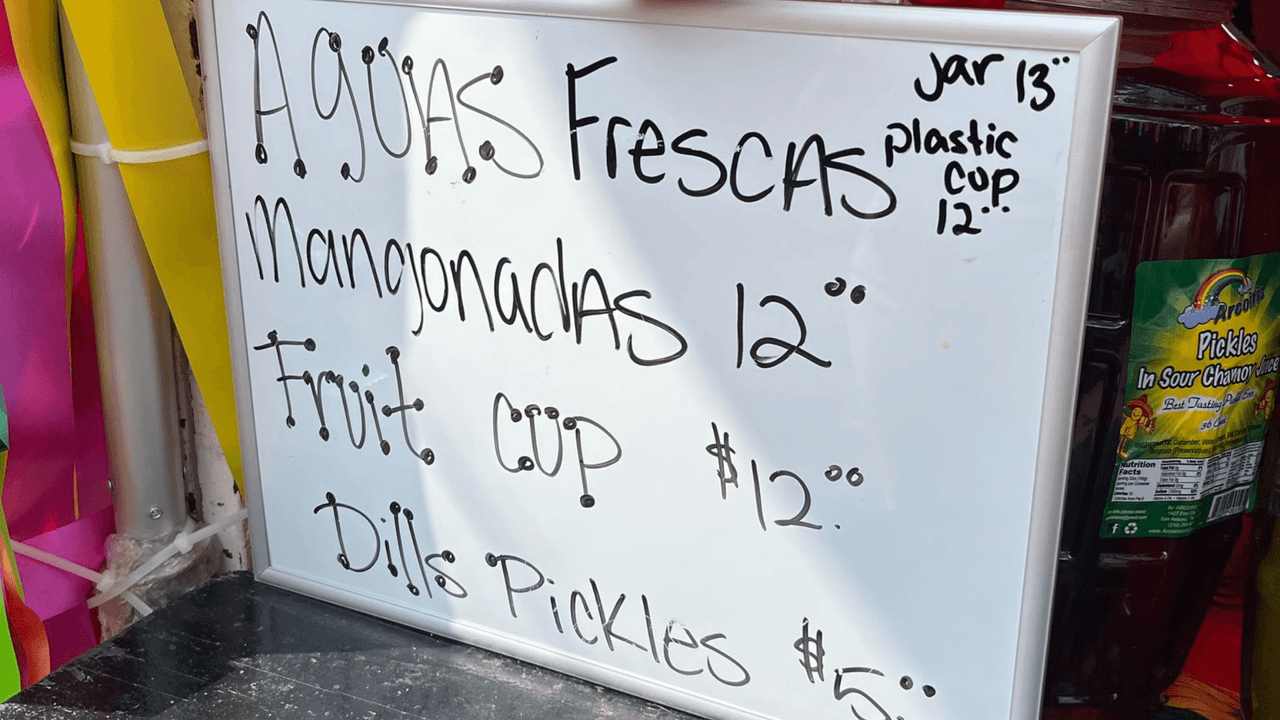 AGUAS FrescAS
Jar 13°°
plastic
cup
12°°
MangonadAS 12°°
Fruit cup $12.°°
Dills Pickles $5.°°
Arcoiris
Pickles
In Sour Chamoy Juice
Best Tasting Pickle Ever
36 Count
Nutrition
Facts